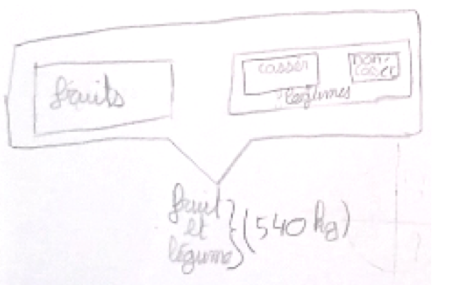 fruits
casser
non-
casser
légumes
fruit
et
légume
(540 kg)